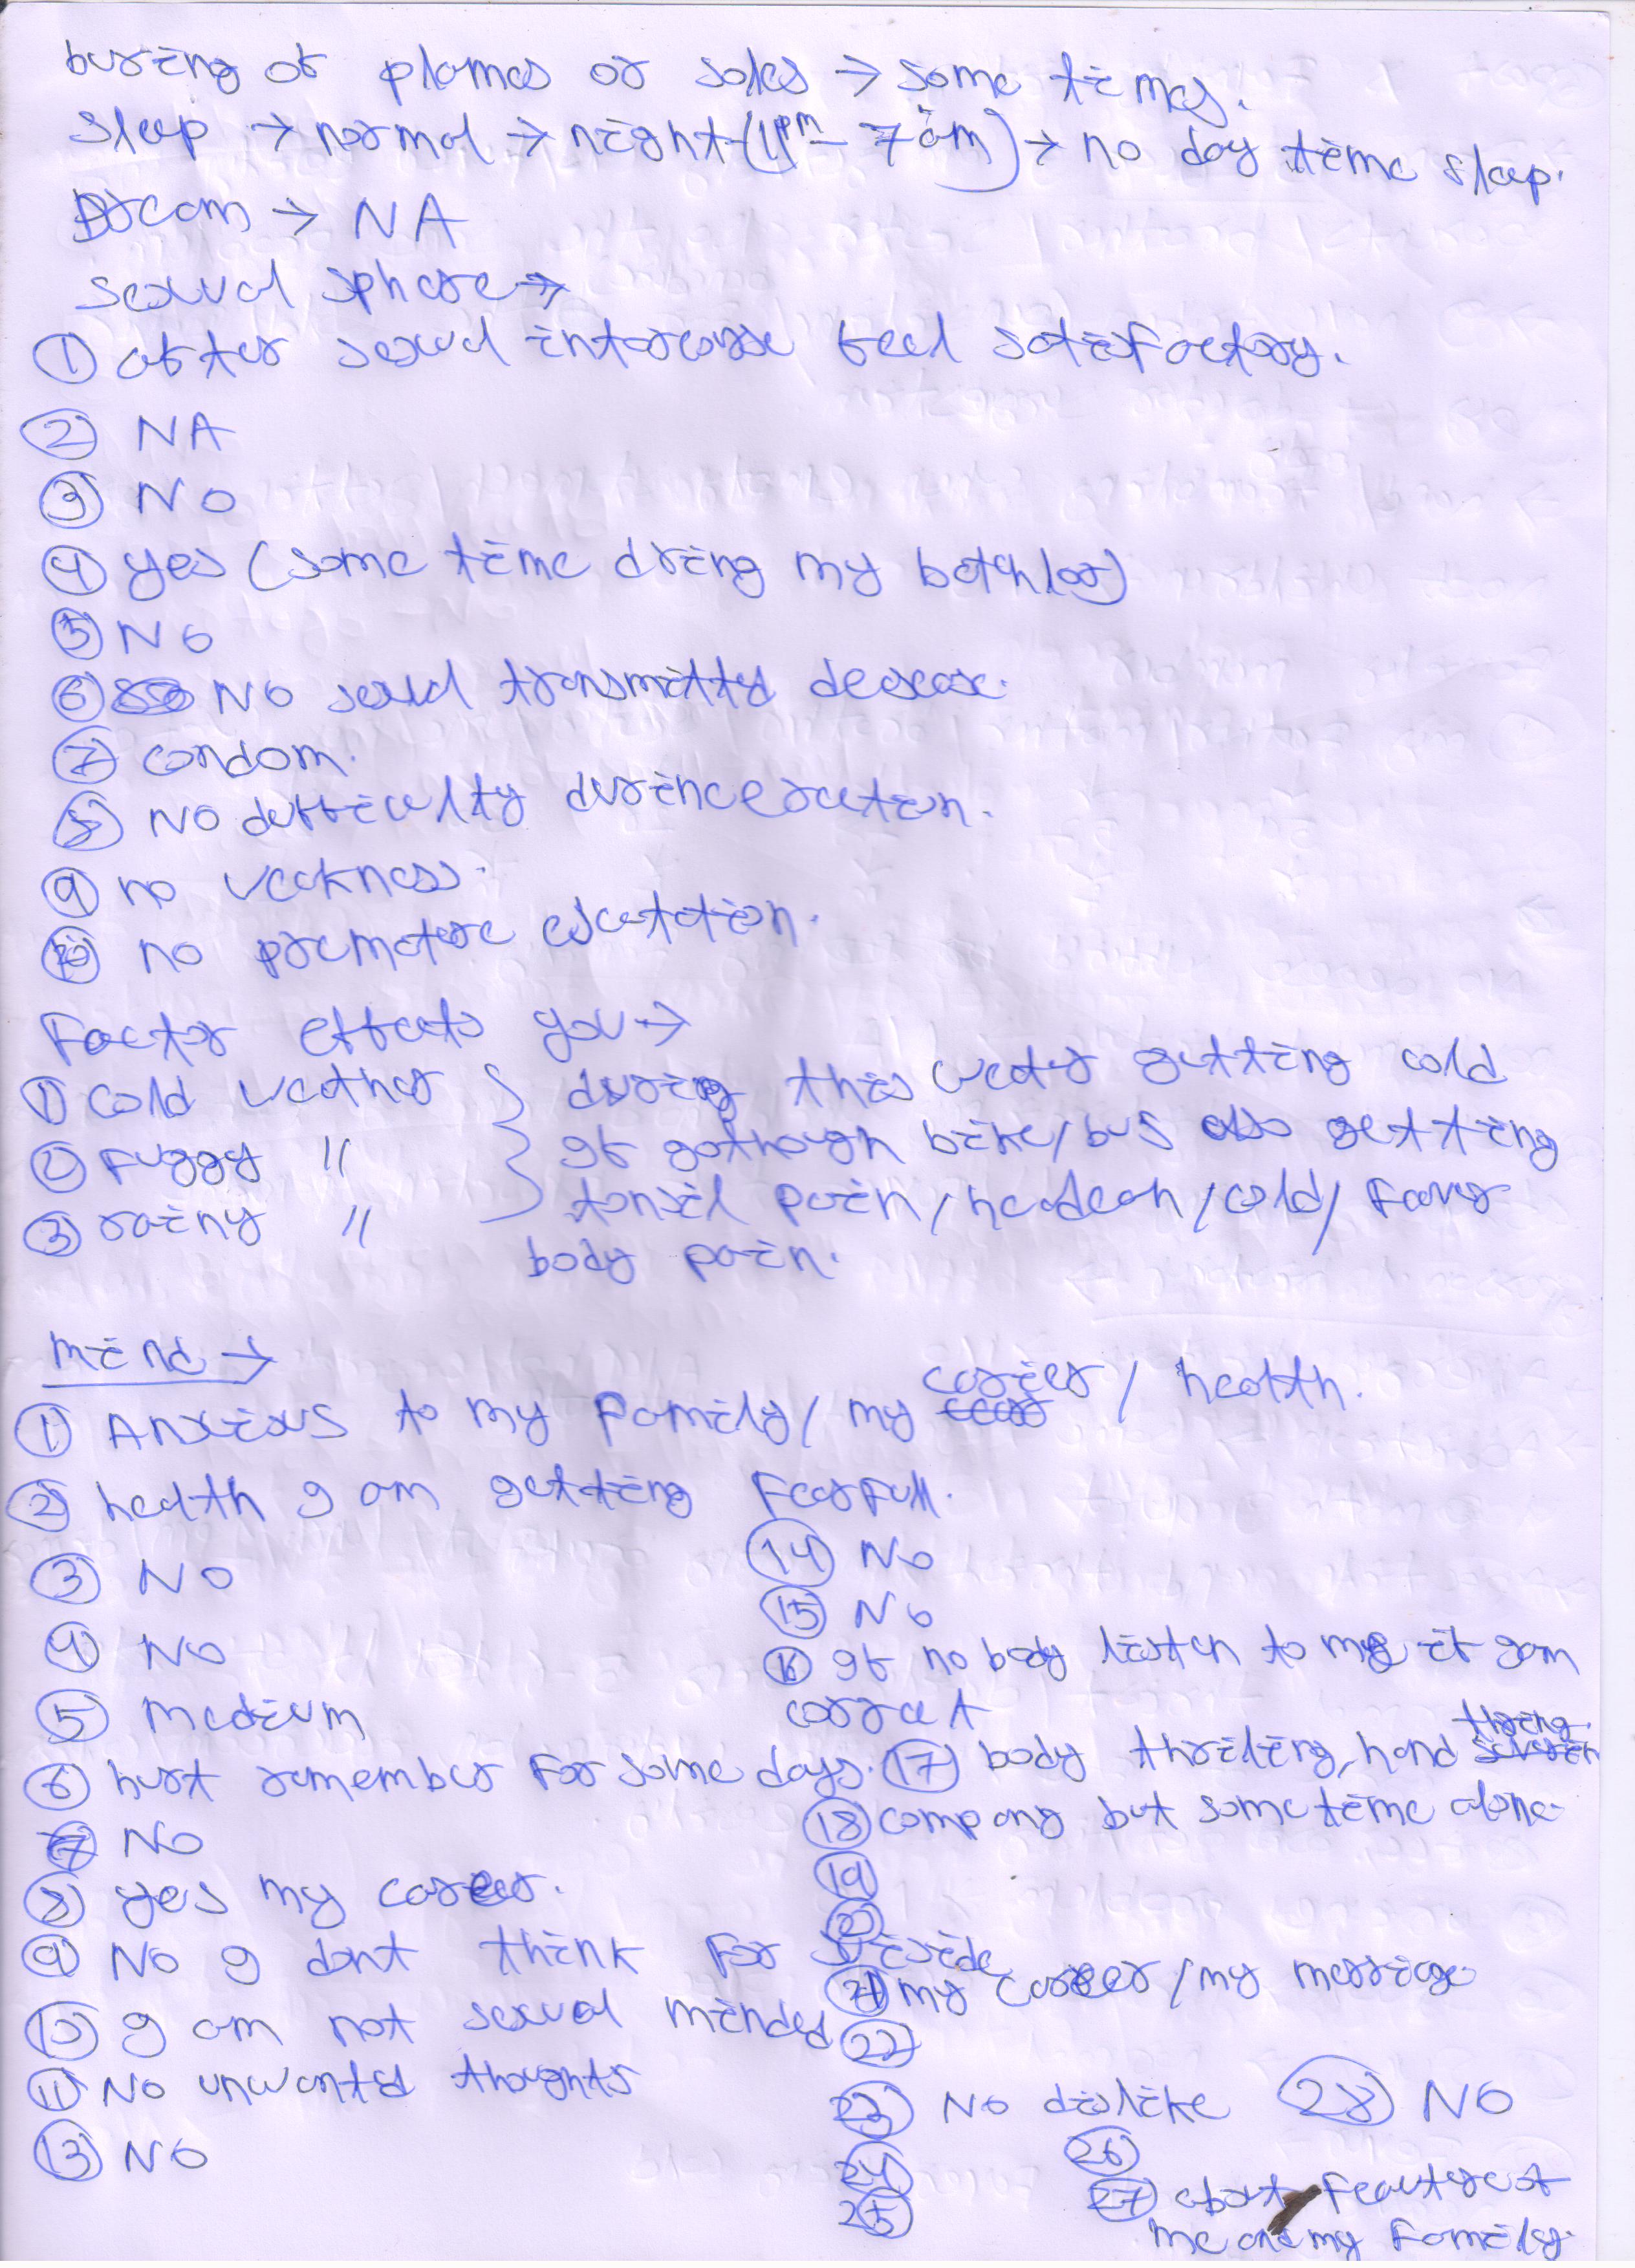 buring of plames or soles → some times.
sleep → normal → night (11pm - 7am) → no day time sleep.
Dream → NA
sexual sphere →
① after sexual intercourse feel satisfactory.
② NA
③ NO
④ yes (some time dring my bathlor)
⑤ NO
⑥ NO sexual transmitted desease.
⑦ condom.
⑧ NO difficulty durince
⑨ no weakness.
⑩ no premature
Factor effects you →
① cold weather } during this weater getting cold
② Fuggy 〃 } If gothough bike/bus also getting
③ rainy 〃 } tonsil pain/headeah/cold/Faver
body pain.
mind →
① Anxious to my Family/my carier/health.
② health I am getting FearFull.
③ NO
④ NO
⑤ medium
⑥ hurt remember For some days.
⑦ NO
⑧ yes my career.
⑨ No I dont think For
⑩ I am not sexual minded
⑪ No unwanted thoughts
⑬ NO
⑭ NO
⑮ NO
⑯ If no body listen to my if I am
correct
⑰ body thriling, hand
⑱ company but some time alone.
⑲
⑳
㉑ my career/my marriage
㉒
㉓ NO dislike
㉔
㉕
㉖
㉗ about
me and my Family.
㉘ NO